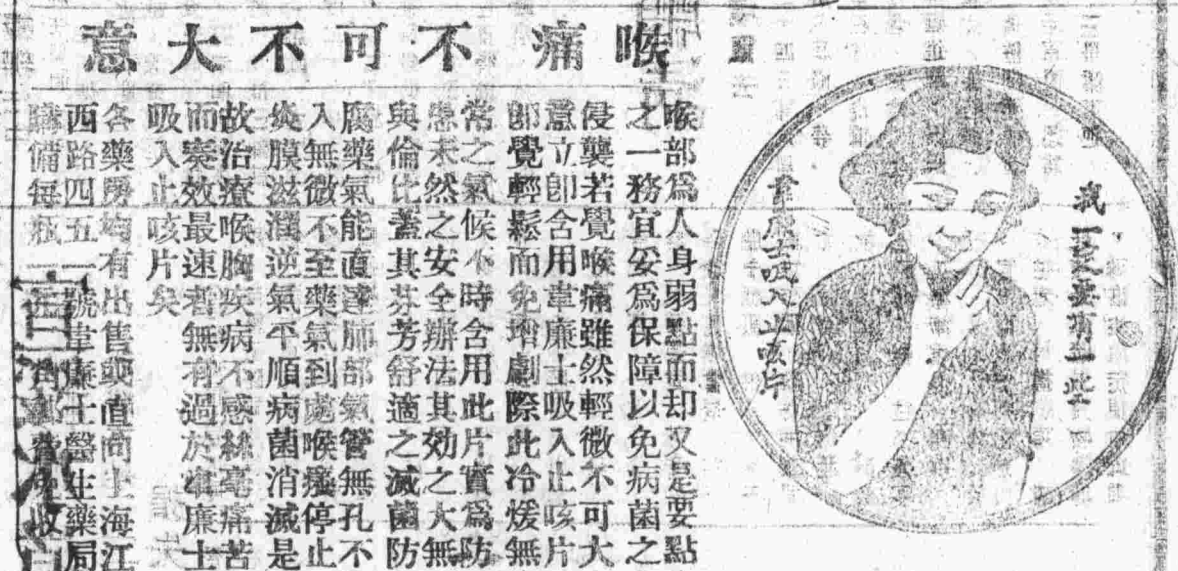 喉痛不可不大意
我一定要有一些
韋廉士吸入止咳片
喉部爲人身弱點而却又是要點
之一務宜妥爲保障以免病菌之
侵襲若覺喉痛雖然輕微不可大
意立卽含用韋廉士吸入止咳片
卽覺輕鬆而免增劇際此冷煖無
常之氣候不時含用此片實爲防
患未然之安全辦法其効之大無
與倫比蓋其芬芳舒適之滅菌防
腐藥氣能直達肺部氣管無孔不
入無微不至藥氣到處喉癢停止
炎膜滋潤逆氣平順病菌消滅是
故治療喉胸疾病不感絲毫痛苦
而奏效最速者無有過於韋廉士
吸入止咳片矣
各藥房均有出售或直向上海江
西路四五一號韋廉士醫生藥局
購備每瓶一